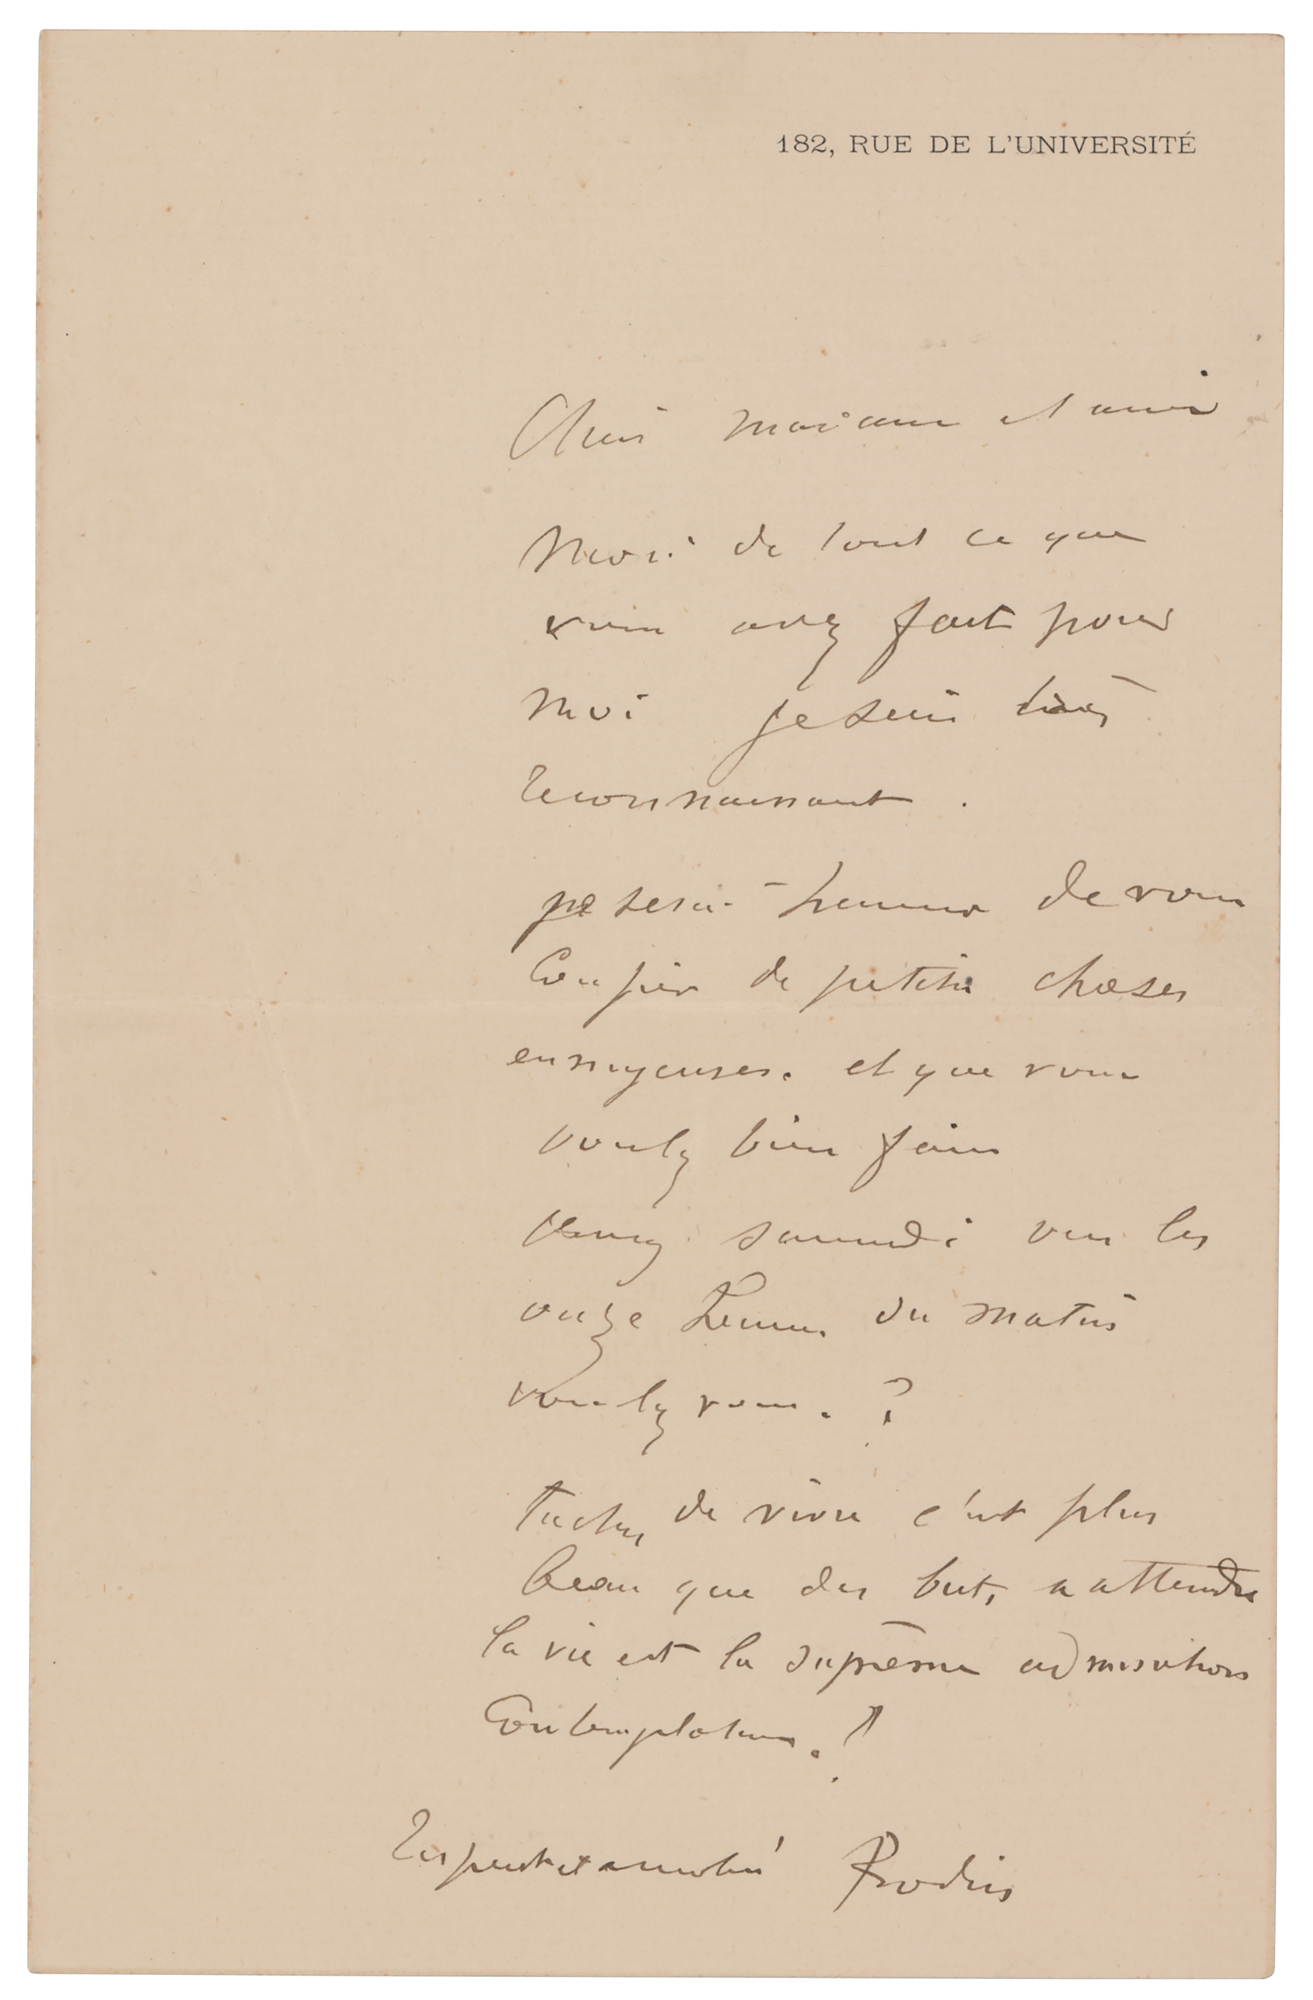 182, RUE DE L'UNIVERSITÉ
Chère madame et amie
Merci de tout ce que
vous avez fait pour
moi je suis très
reconnaissant.
je serai heureux de vous
Confier de petites choses
ennuyeuses. et que vous
voulez bien faire
Venez samedi vers les
onze heures du matin
voulez vous. ?
Tachez de vivre c'est plus
beau que des buts a attendre
la vie est la suprême admiration
Contemplation. !
Respect et amitié Rodin